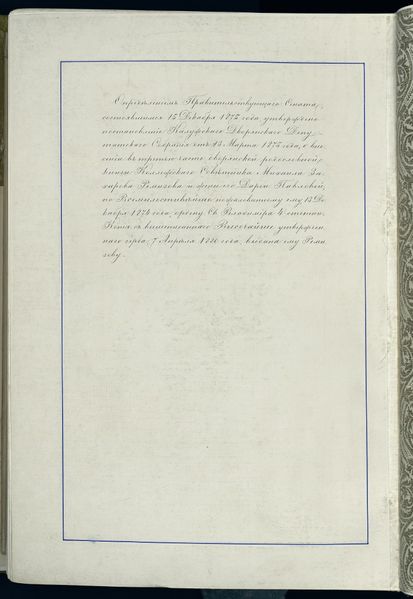 Опредѣленіемъ Правительствующаго Сената,
состоявшимся 15 Декабря 1875 года, утверждено
постановленіе Калужскаго Дворянскаго Депу-
татскаго Собранія отъ 13 Марта 1875 года, о вне-
сеніи въ третью часть дворянской родословной
книги Коллежскаго Совѣтника Михаила За-
харова Ремизова и жены его Дарьи Павловой,
по Всемилостивѣйше пожалованному ему 13 Де-
кабря 1874 года, ордену Св. Владиміра 4 степени.
Копія съ вышеписаннаго Высочайше утвержден-
наго герба, 7 Апрѣля 1880 года, выдана ему Реми-
зову.